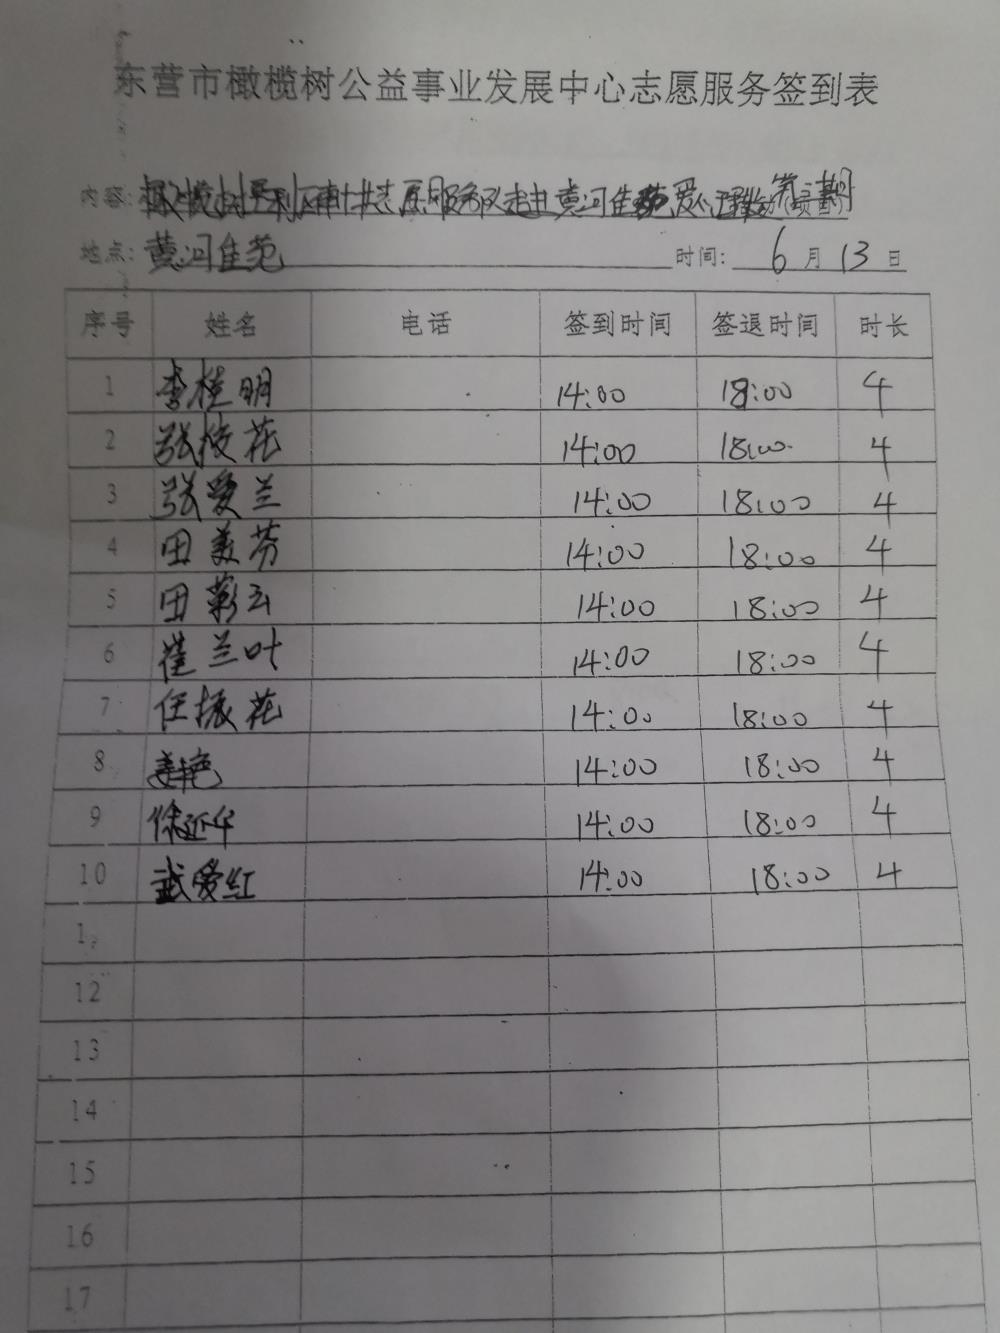 东营市橄榄树公益事业发展中心志愿服务签到表
内容: 橄榄树垦利 志愿服务队走进黄河佳苑爱心 第 期
地点: 黄河佳苑 时间: 6月13日
序号 姓名 电话 签到时间 签退时间 时长
1 李桂明 14:00 18:00 4
2 张俊花 14:00 18:00 4
3 张爱兰 14:00 18:00 4
4 田美芬 14:00 18:00 4
5 田彩云 14:00 18:00 4
6 崔兰叶 14:00 18:00 4
7 任振花 14:00 18:00 4
8 姜艳 14:00 18:00 4
9 徐延华 14:00 18:00 4
10 武爱红 14:00 18:00 4
12
13
14
15
16
17